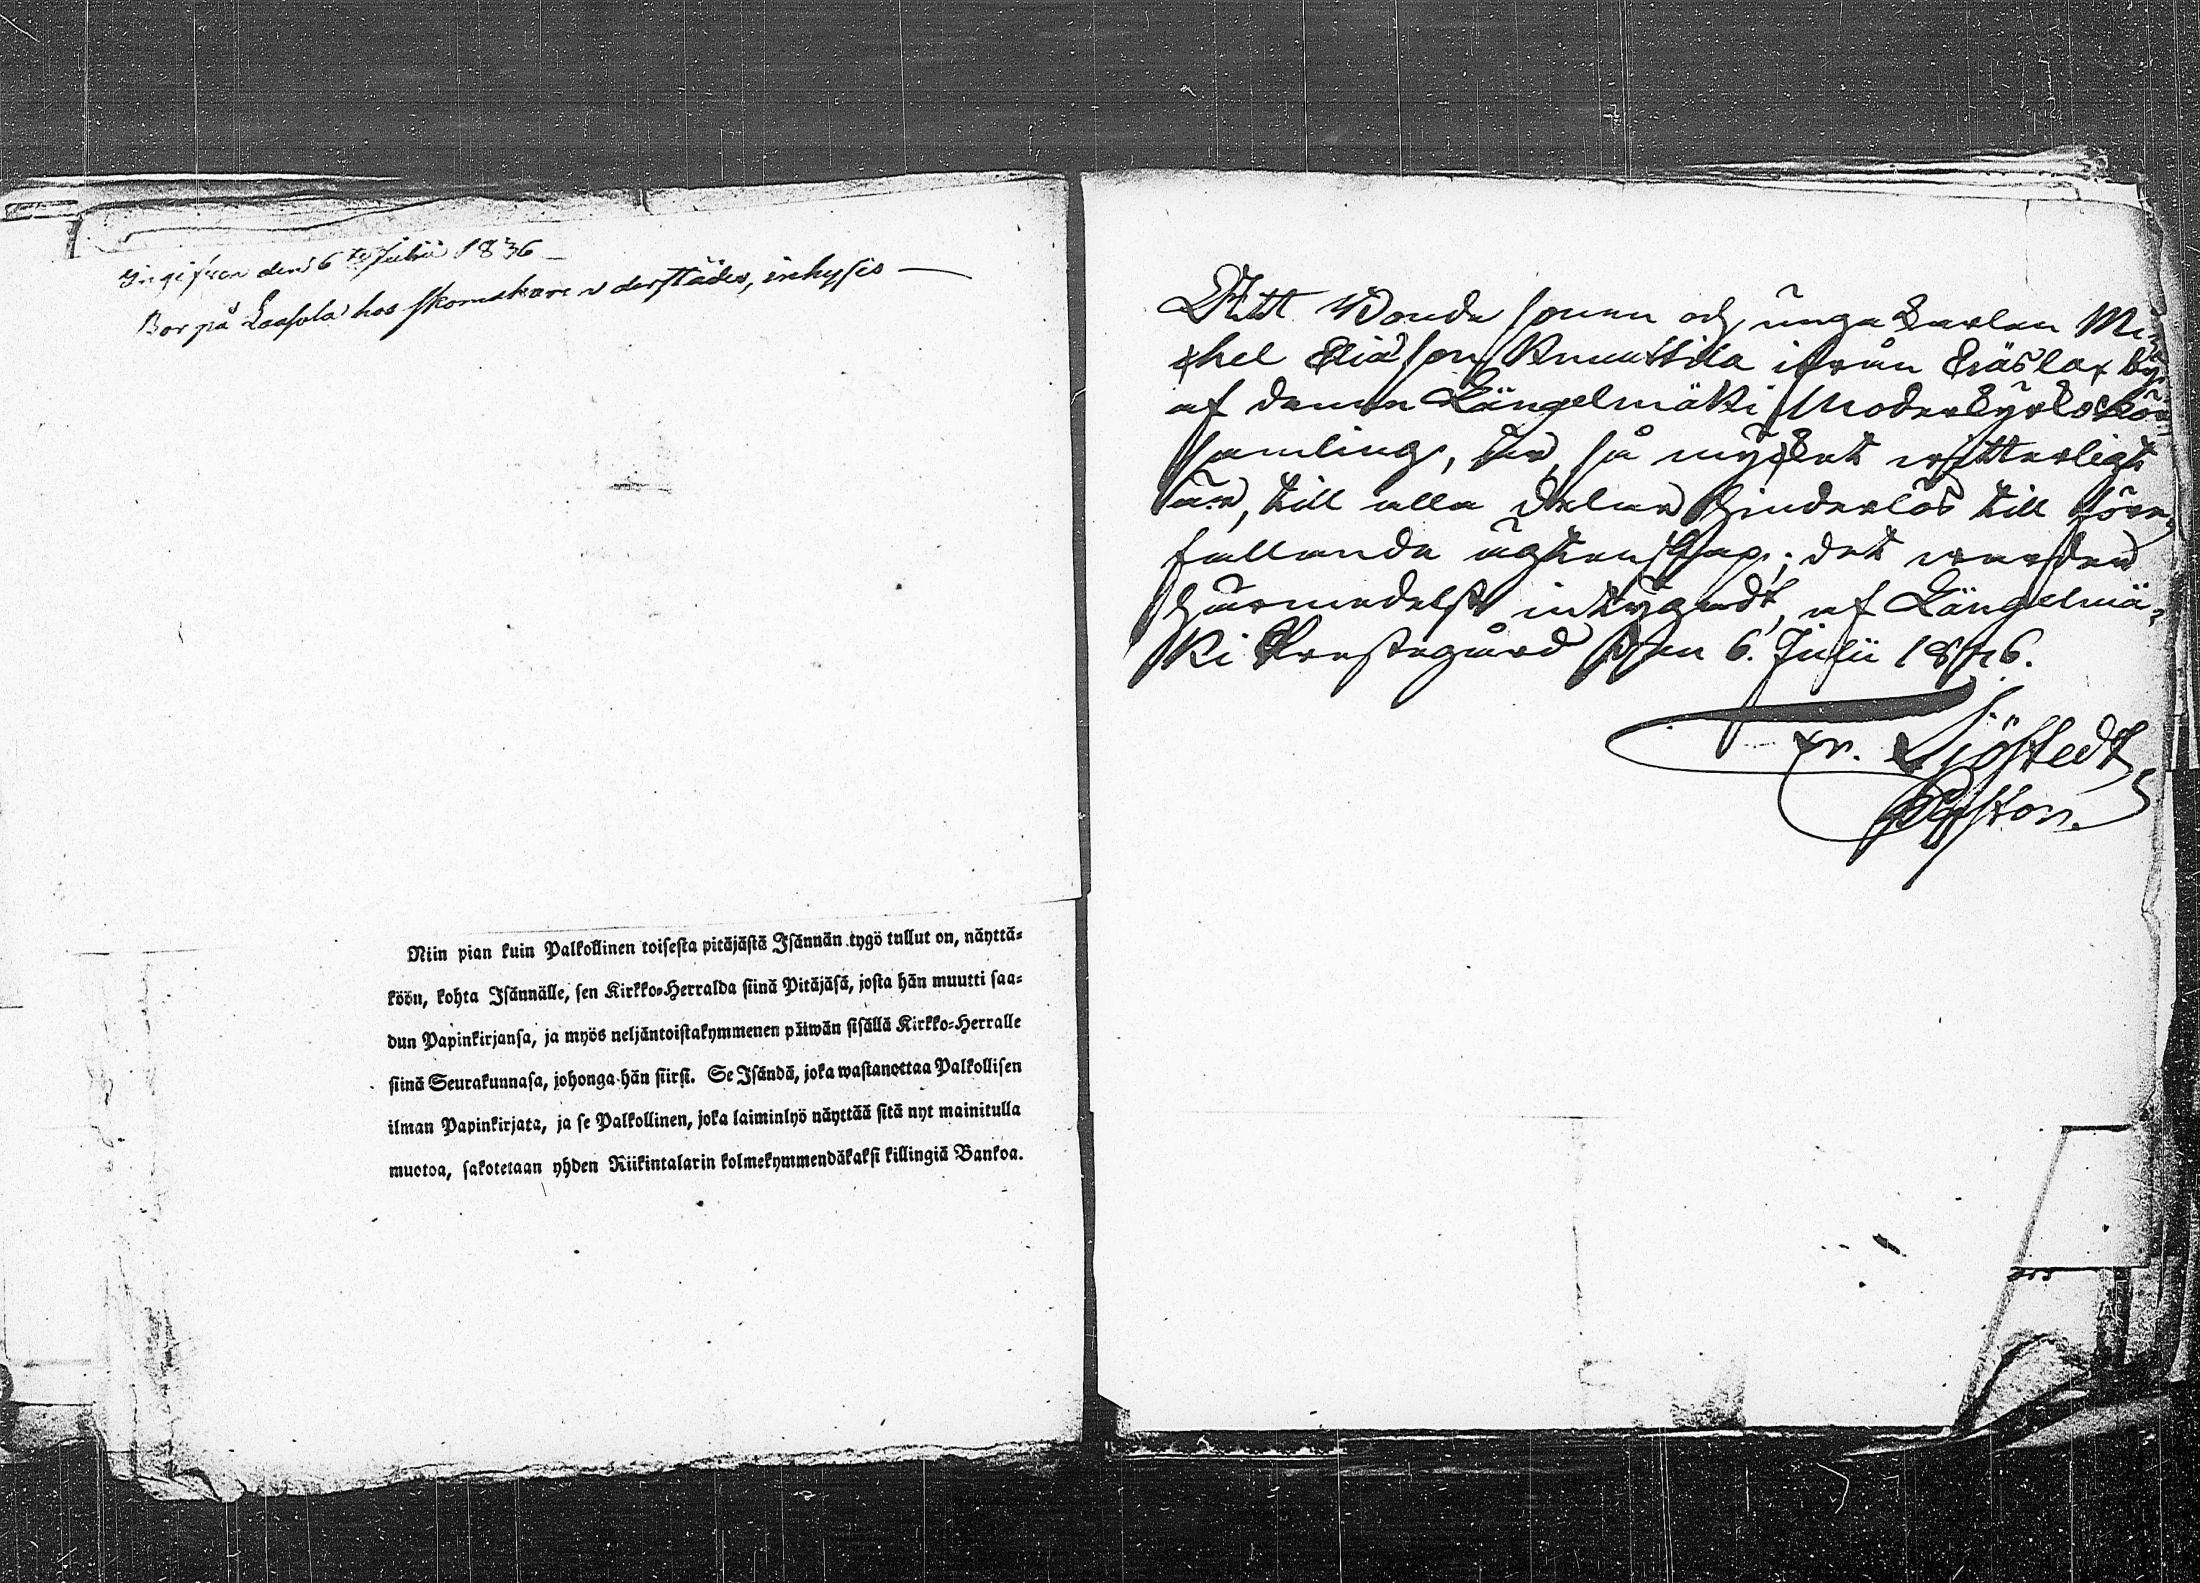 Ingifven den 6te Julii 1836
Bor på Laasola hos skomakare n derstädes, inhyses —
Niin pian kuin Palkollinen toisesta pitäjästä Isännän tygö tullut on, näyttä-
köön, kohta Isännälle, sen Kirkko-Herralda siinä Pitäjäsä, josta hän muutti saa-
dun Papinkirjansa, ja myös neljäntoistakymmenen päiwän sisällä Kirkko-Herralle
siinä Seurakunnasa, johonga hän siirsi. Se Isändä, joka wastanottaa Palkollisen
ilman Papinkirjata, ja se Palkollinen, joka laiminlyö näyttää sitä nyt mainitulla
muotoa, sakotetaan yhden Riikintalarin kolmekymmendäkaksi killingiä Bankoa.
Att Bonde sonen och unga karlen Mi-
chel Eliasson Knuuttila ifrån Eräslax by
af denna Längelmäki Moderkyrko för-
samling, är, så mycket witterligt
är, till alla delar hinderlös till före-
fallande ägtenskap; det warder
härmedelst intygadt, af Längelmä-
ki Prestegård den 6. Julii 1836.
Fr. Sjöstedt
Pastor.